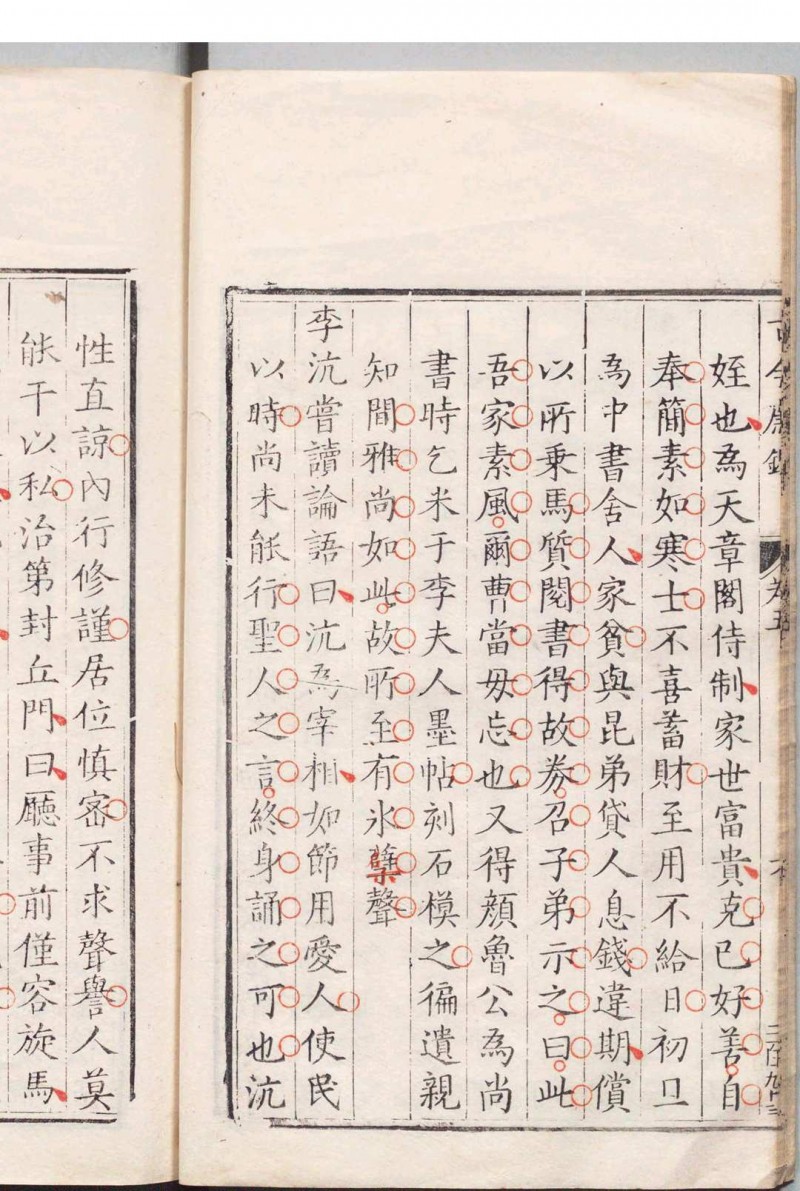 姪也為天章閣侍制家世富貴克已好善自
奉簡素如寒士不喜蓄財至用不給日初旦
為中書舍人家貧與昆弟貸人息錢違期償
以所乗馬質閱書得故劵召子弟示之曰此
吾家素風爾曹當毋忘也又得顏魯公為尚
書時乞米于李夫人墨帖刻石模之徧遺親
知間雅尚如此故所至有氷蘖聲
李沆嘗讀論語曰沆為宰相如節用愛人使民
以時尚未能行聖人之言終身誦之可也沆
性直諒內行修謹居位慎密不求聲譽人莫
能干以私治第封丘門曰廳事前僅容旋馬